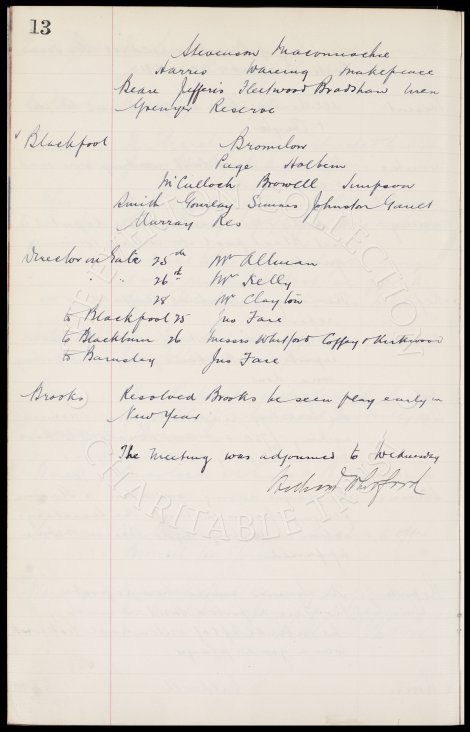 13
Stevenson Maconnachie
Harris Wareing Makepeace
Beare Jefferis Fleetwood Bradshaw Uren
Grenyer Reserve
Blackpool Bromilow
Page Holbem
McCulloch Browell Simpson
Smith Gourlay Simms Johnston Gault
Murray Res
Director on Gate 25th Mr Allman
" " 26th Mr Kelly
28 Mr Clayton
to Blackpool 25 Jno Fare
to Blackburn 26 Messrs Whitford Coffey & Kirkwood
to Barnsley Jno Fare
Brooks Resolved Brooks be seen play early in
New Year
The Meeting was adjourned to Wednesday
Whitford
THE COLLECTION
CHARITABLE